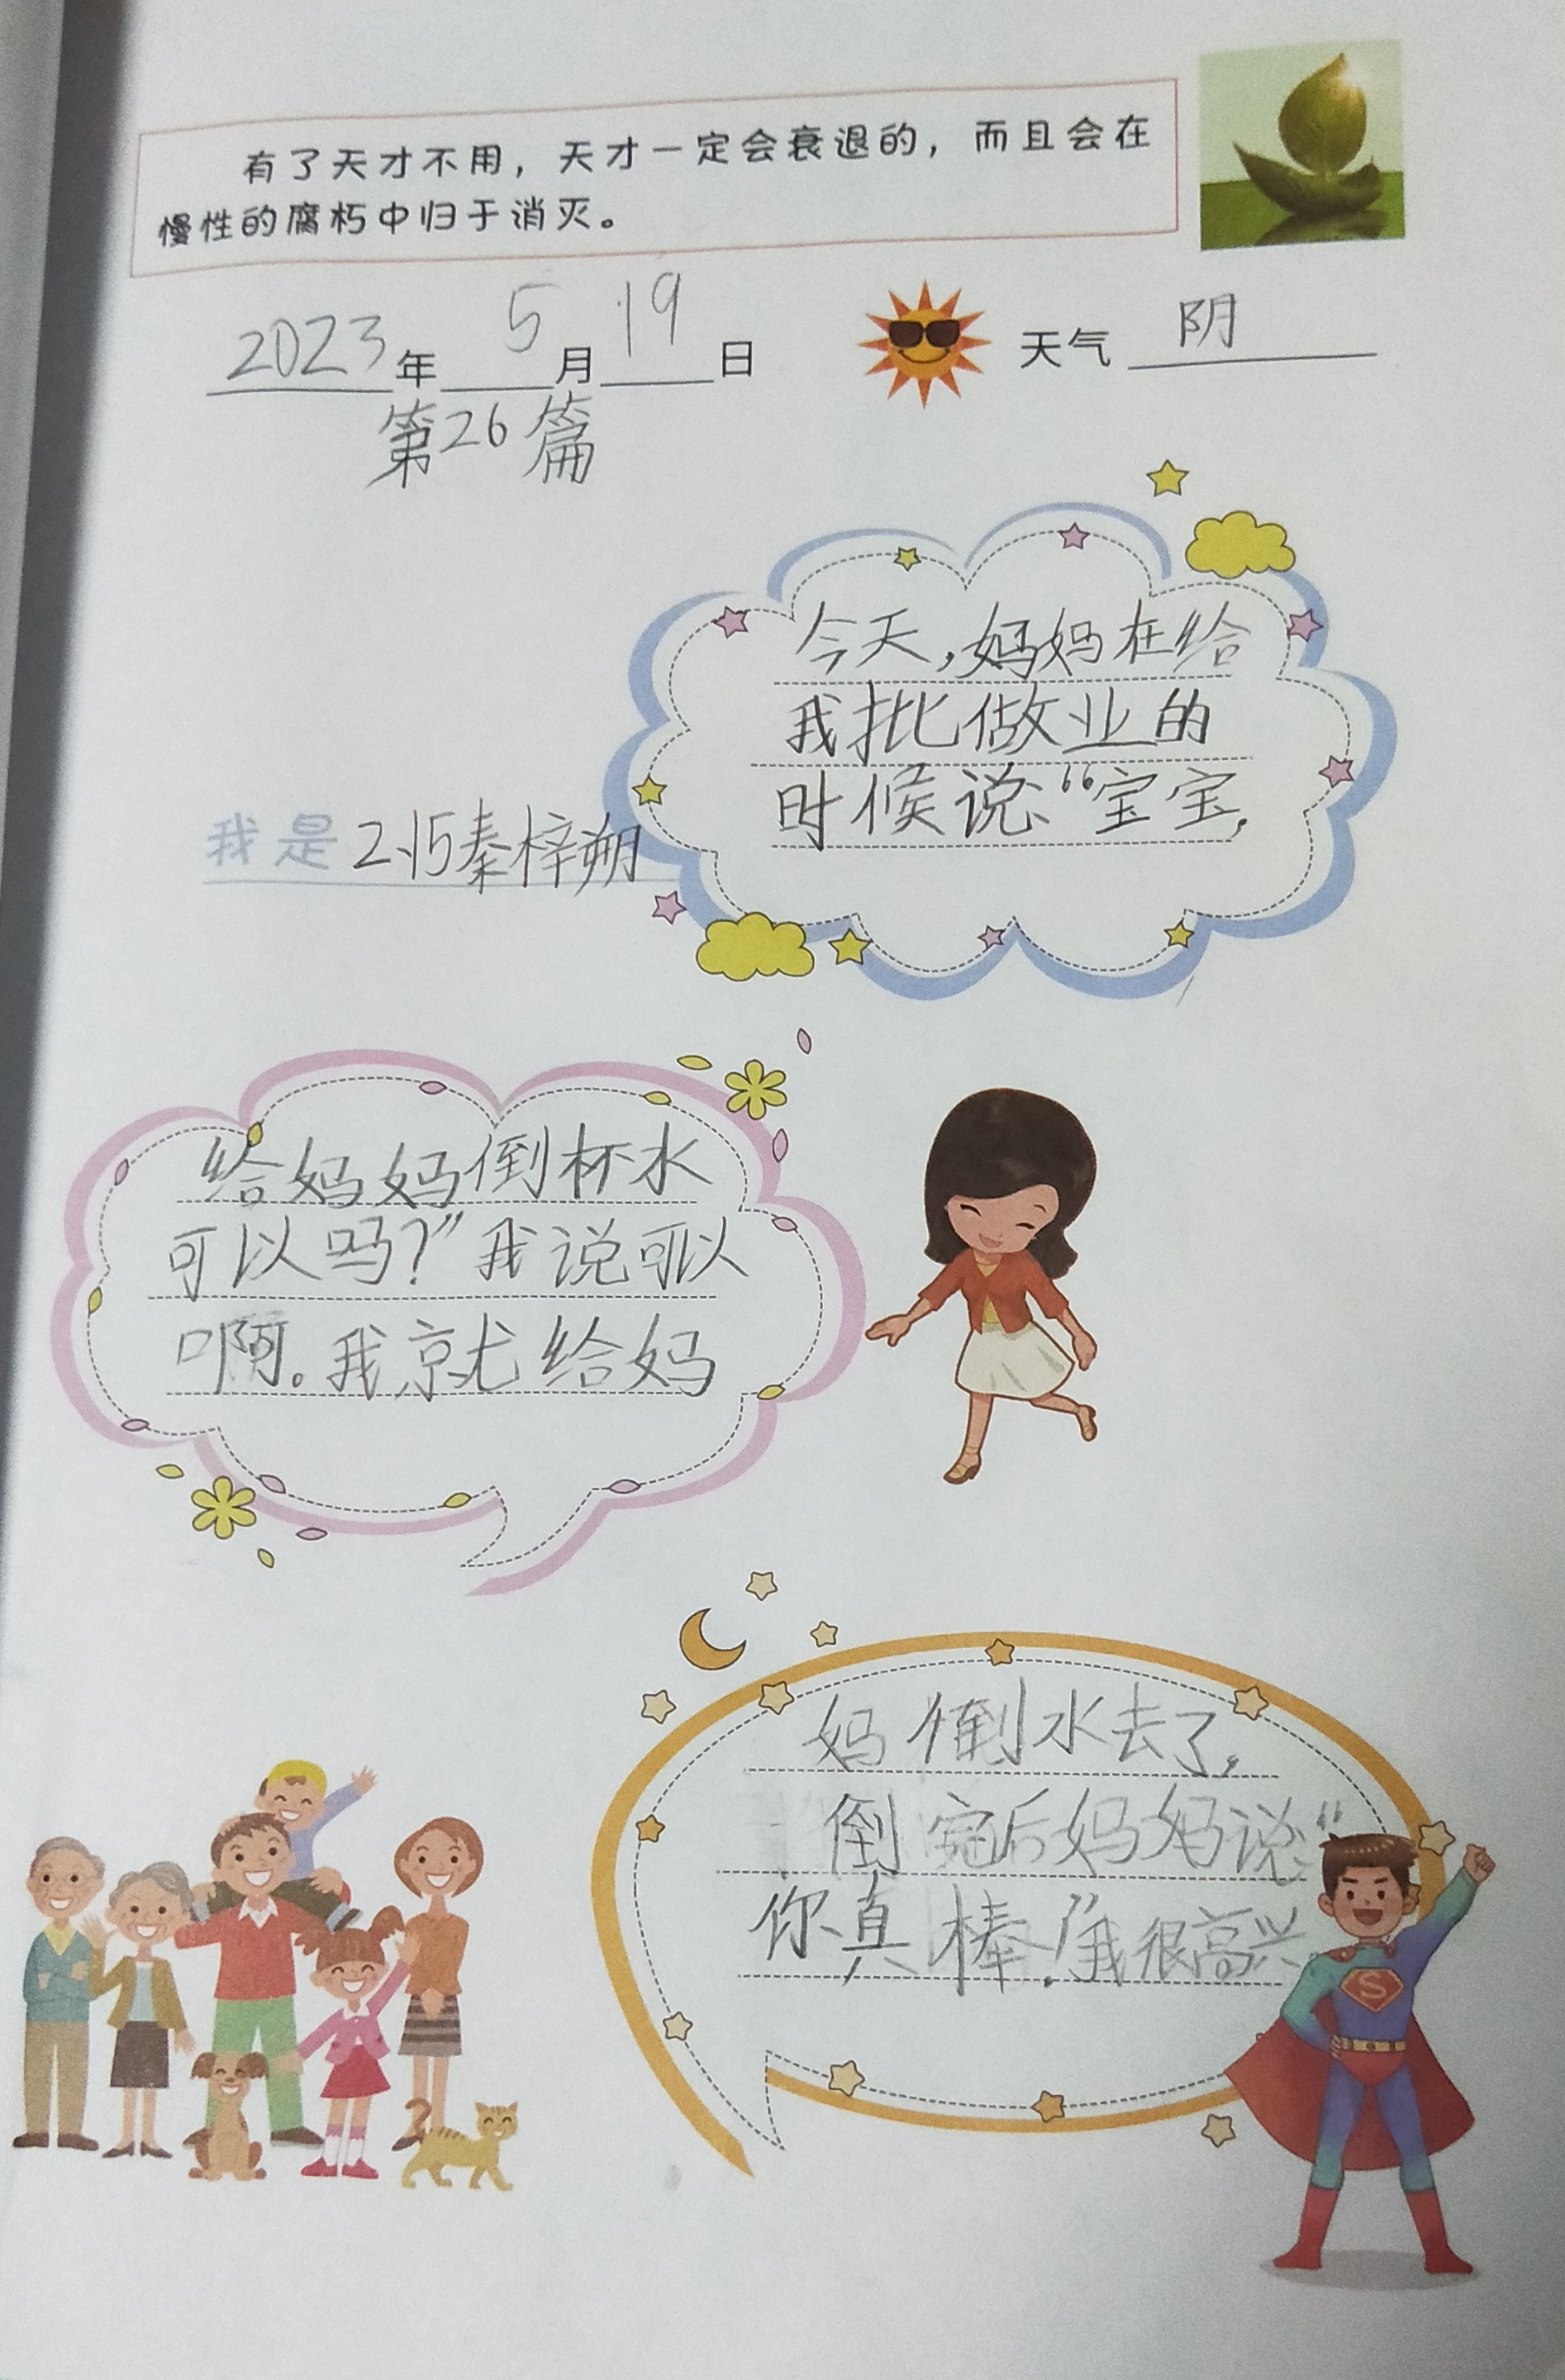 有了天才不用，天才一定会衰退的，而且会在
慢性的腐朽中归于消灭。
2023年5月19日 天气 阴
第26篇
今天，妈妈在给
我批做业的
时候说：“宝宝，
我是 2.15秦梓朔
给妈妈倒杯水
可以吗？”我说可以
啊。我就给妈
妈倒水去了，
倒完后妈妈说：“
你真棒！”我很高兴
S